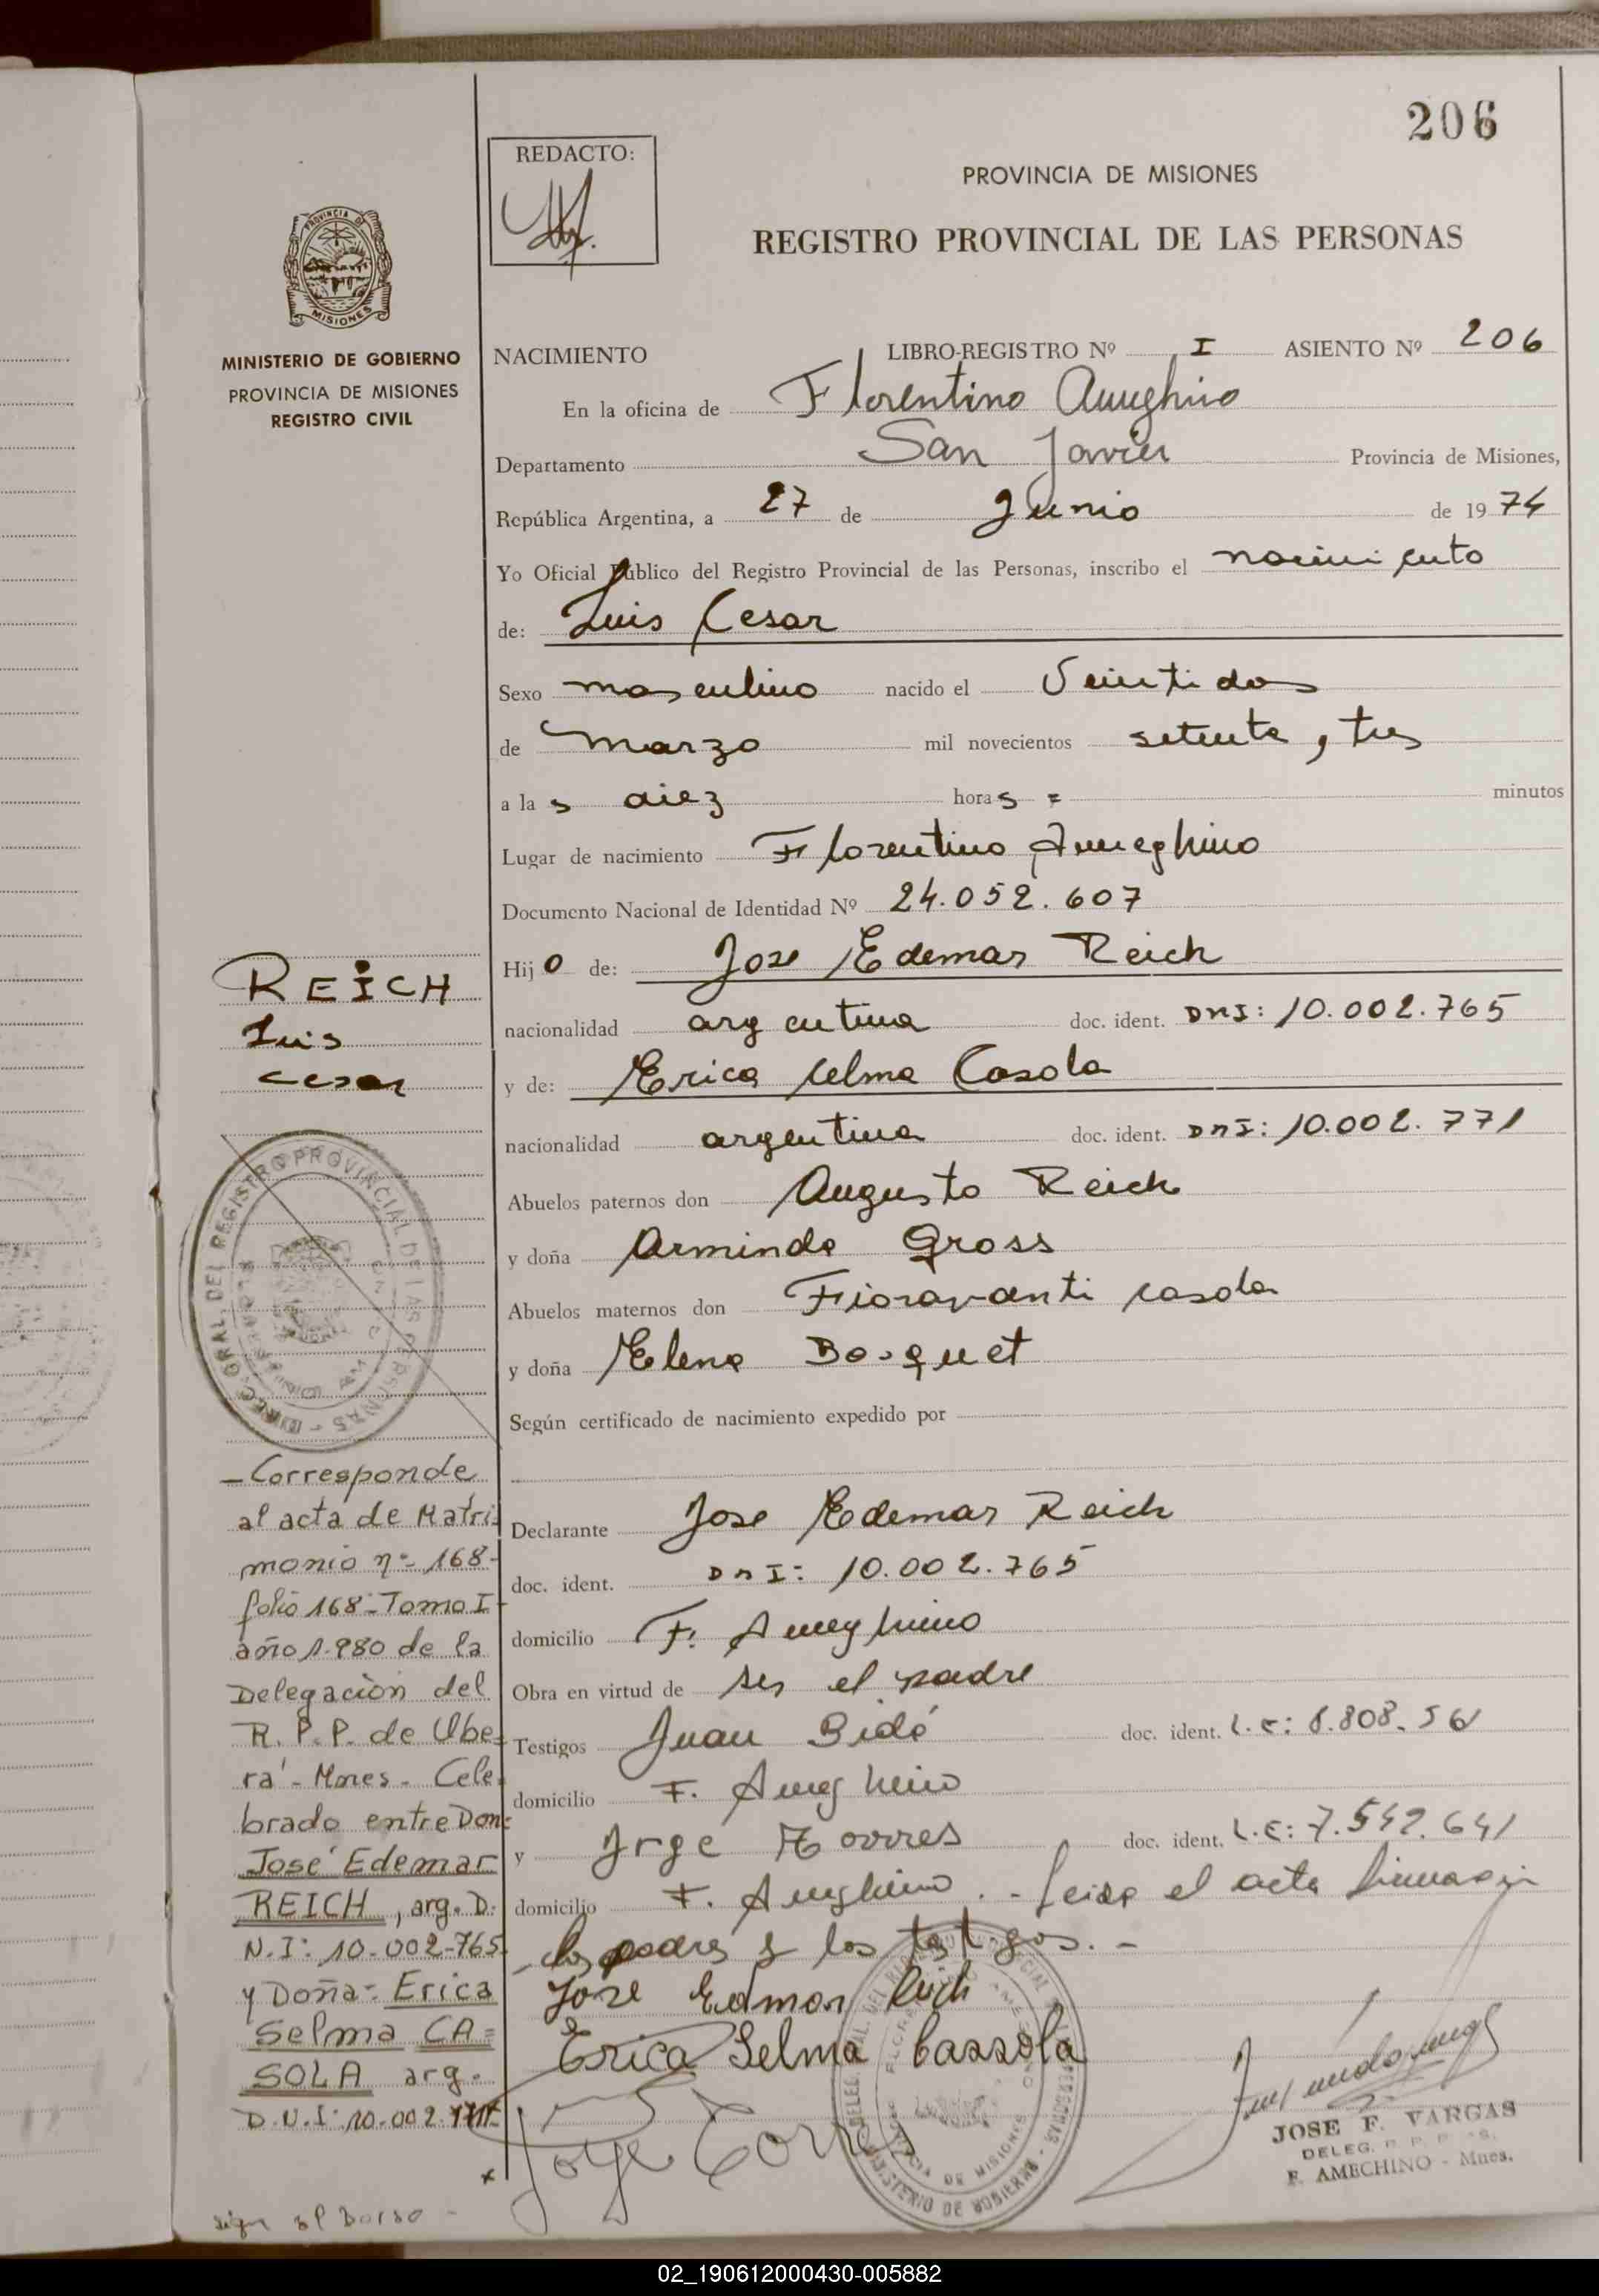 206
REDACTO:
PROVINCIA DE MISIONES
REGISTRO PROVINCIAL DE LAS PERSONAS
PROVINCIA DE
MISIONES
MINISTERIO DE GOBIERNO
PROVINCIA DE MISIONES
REGISTRO CIVIL
NACIMIENTO LIBRO-REGISTRO Nº I ASIENTO Nº 206
En la oficina de Florentino Ameghino
Departamento San Javier Provincia de Misiones,
República Argentina, a 27 de Junio de 1974
Yo Oficial Público del Registro Provincial de las Personas, inscribo el nacimiento
de: Luis Cesar
Sexo masculino nacido el Veintidos
de marzo mil novecientos setenta y tres
a las diez horas = minutos
Lugar de nacimiento Florentino Ameghino
Documento Nacional de Identidad Nº 24.052.607
Hijo de: Jose Edemar Reich
nacionalidad argentina doc. ident. DNI: 10.002.765
y de: Erica Selma Casola
nacionalidad argentina doc. ident. DNI: 10.002.771
Abuelos paternos don Augusto Reich
y doña Arminda Gross
Abuelos maternos don Fioravanti Casola
y doña Elena Bosquet
Según certificado de nacimiento expedido por
Declarante Jose Edemar Reich
doc. ident. DNI: 10.002.765
domicilio F. Ameghino
Obra en virtud de ser el padre
Testigos Juan Bidó doc. ident. L.E:
domicilio F. Ameghino
y Jrge Torres doc. ident. L.E: 7.542.641
domicilio F. Ameghino.- Leida el acta firman
los padres y los testigos.-
Jose Edmar Reich
Erica Selma Cassola
Jorge Torres
JOSE F. VARGAS
DELEG.
F. AMECHINO - Mnes.
REICH
Luis
Cesar
DIREC. GRAL. DEL REGISTRO PROVINCIAL DE LAS PERSONAS
- Corresponde
al acta de Matri-
monio nº 168-
folio 168-Tomo I-
año 1.980 de la
Delegación del
R.P.P. de Obe-
rá - Mnes - Cele-
brado entre Don:
José Edemar
REICH, arg. D.
N.I: 10-002-765-
y Doña: Erica
Selma CA=
SOLA arg.
D.N.I: 10.002.771-
sigue al Dorso -
MINISTERIO DE GOBIERNO
PROVINCIA DE MISIONES
02_190612000430-005882